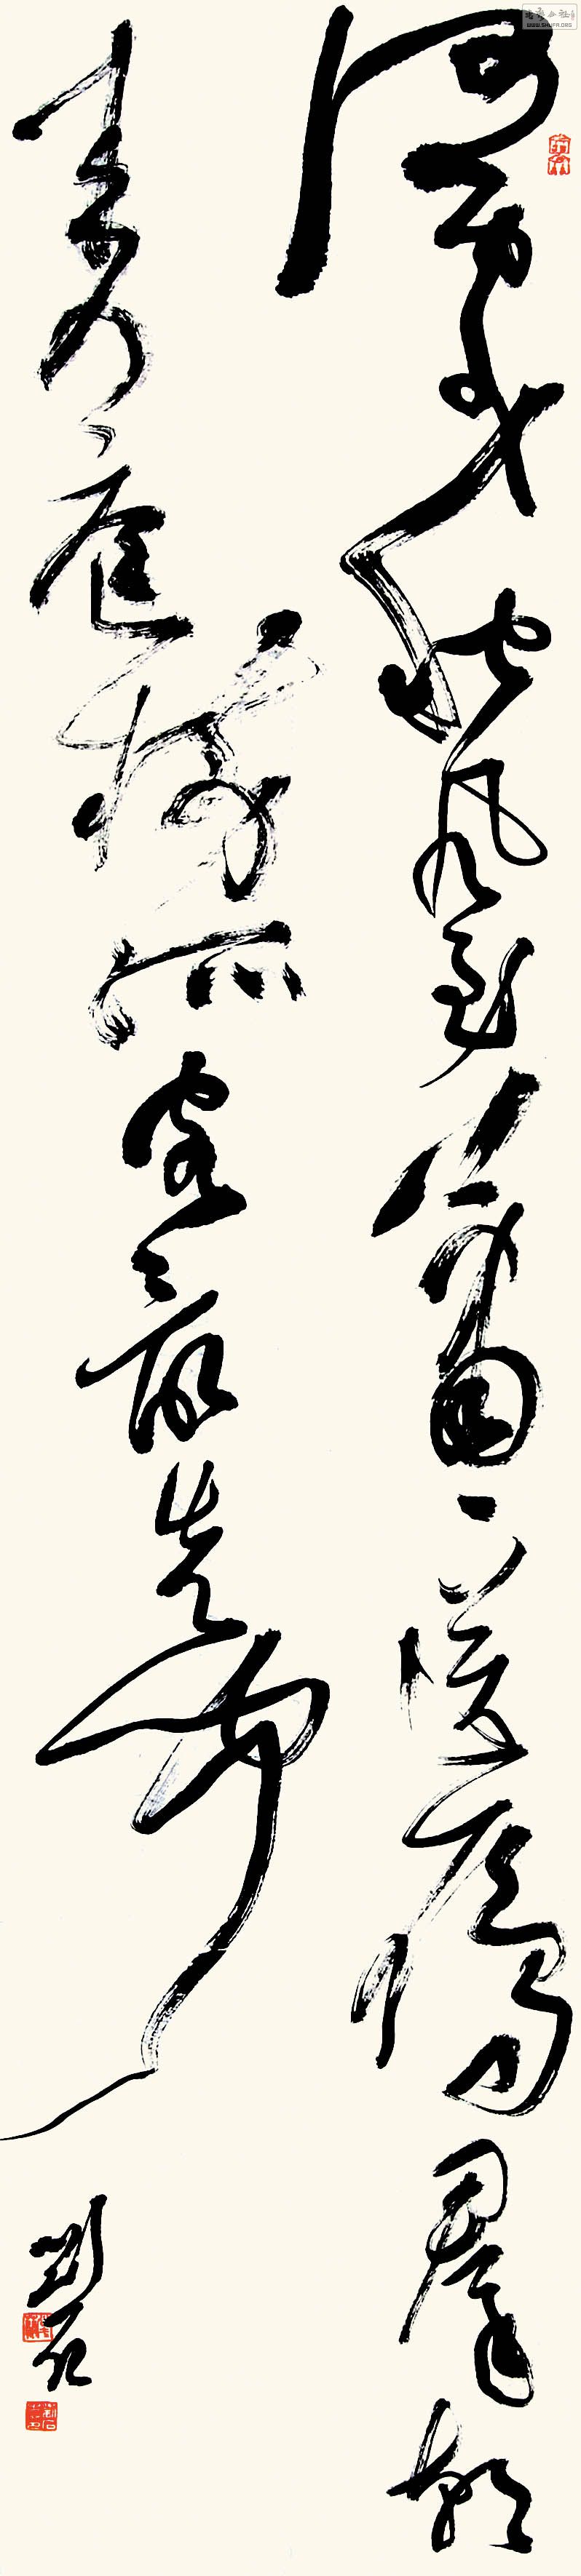 何处秋风至萧萧送雁群朝
来入庭树孤客最先闻
刘石
WWW.SHUFA.ORG